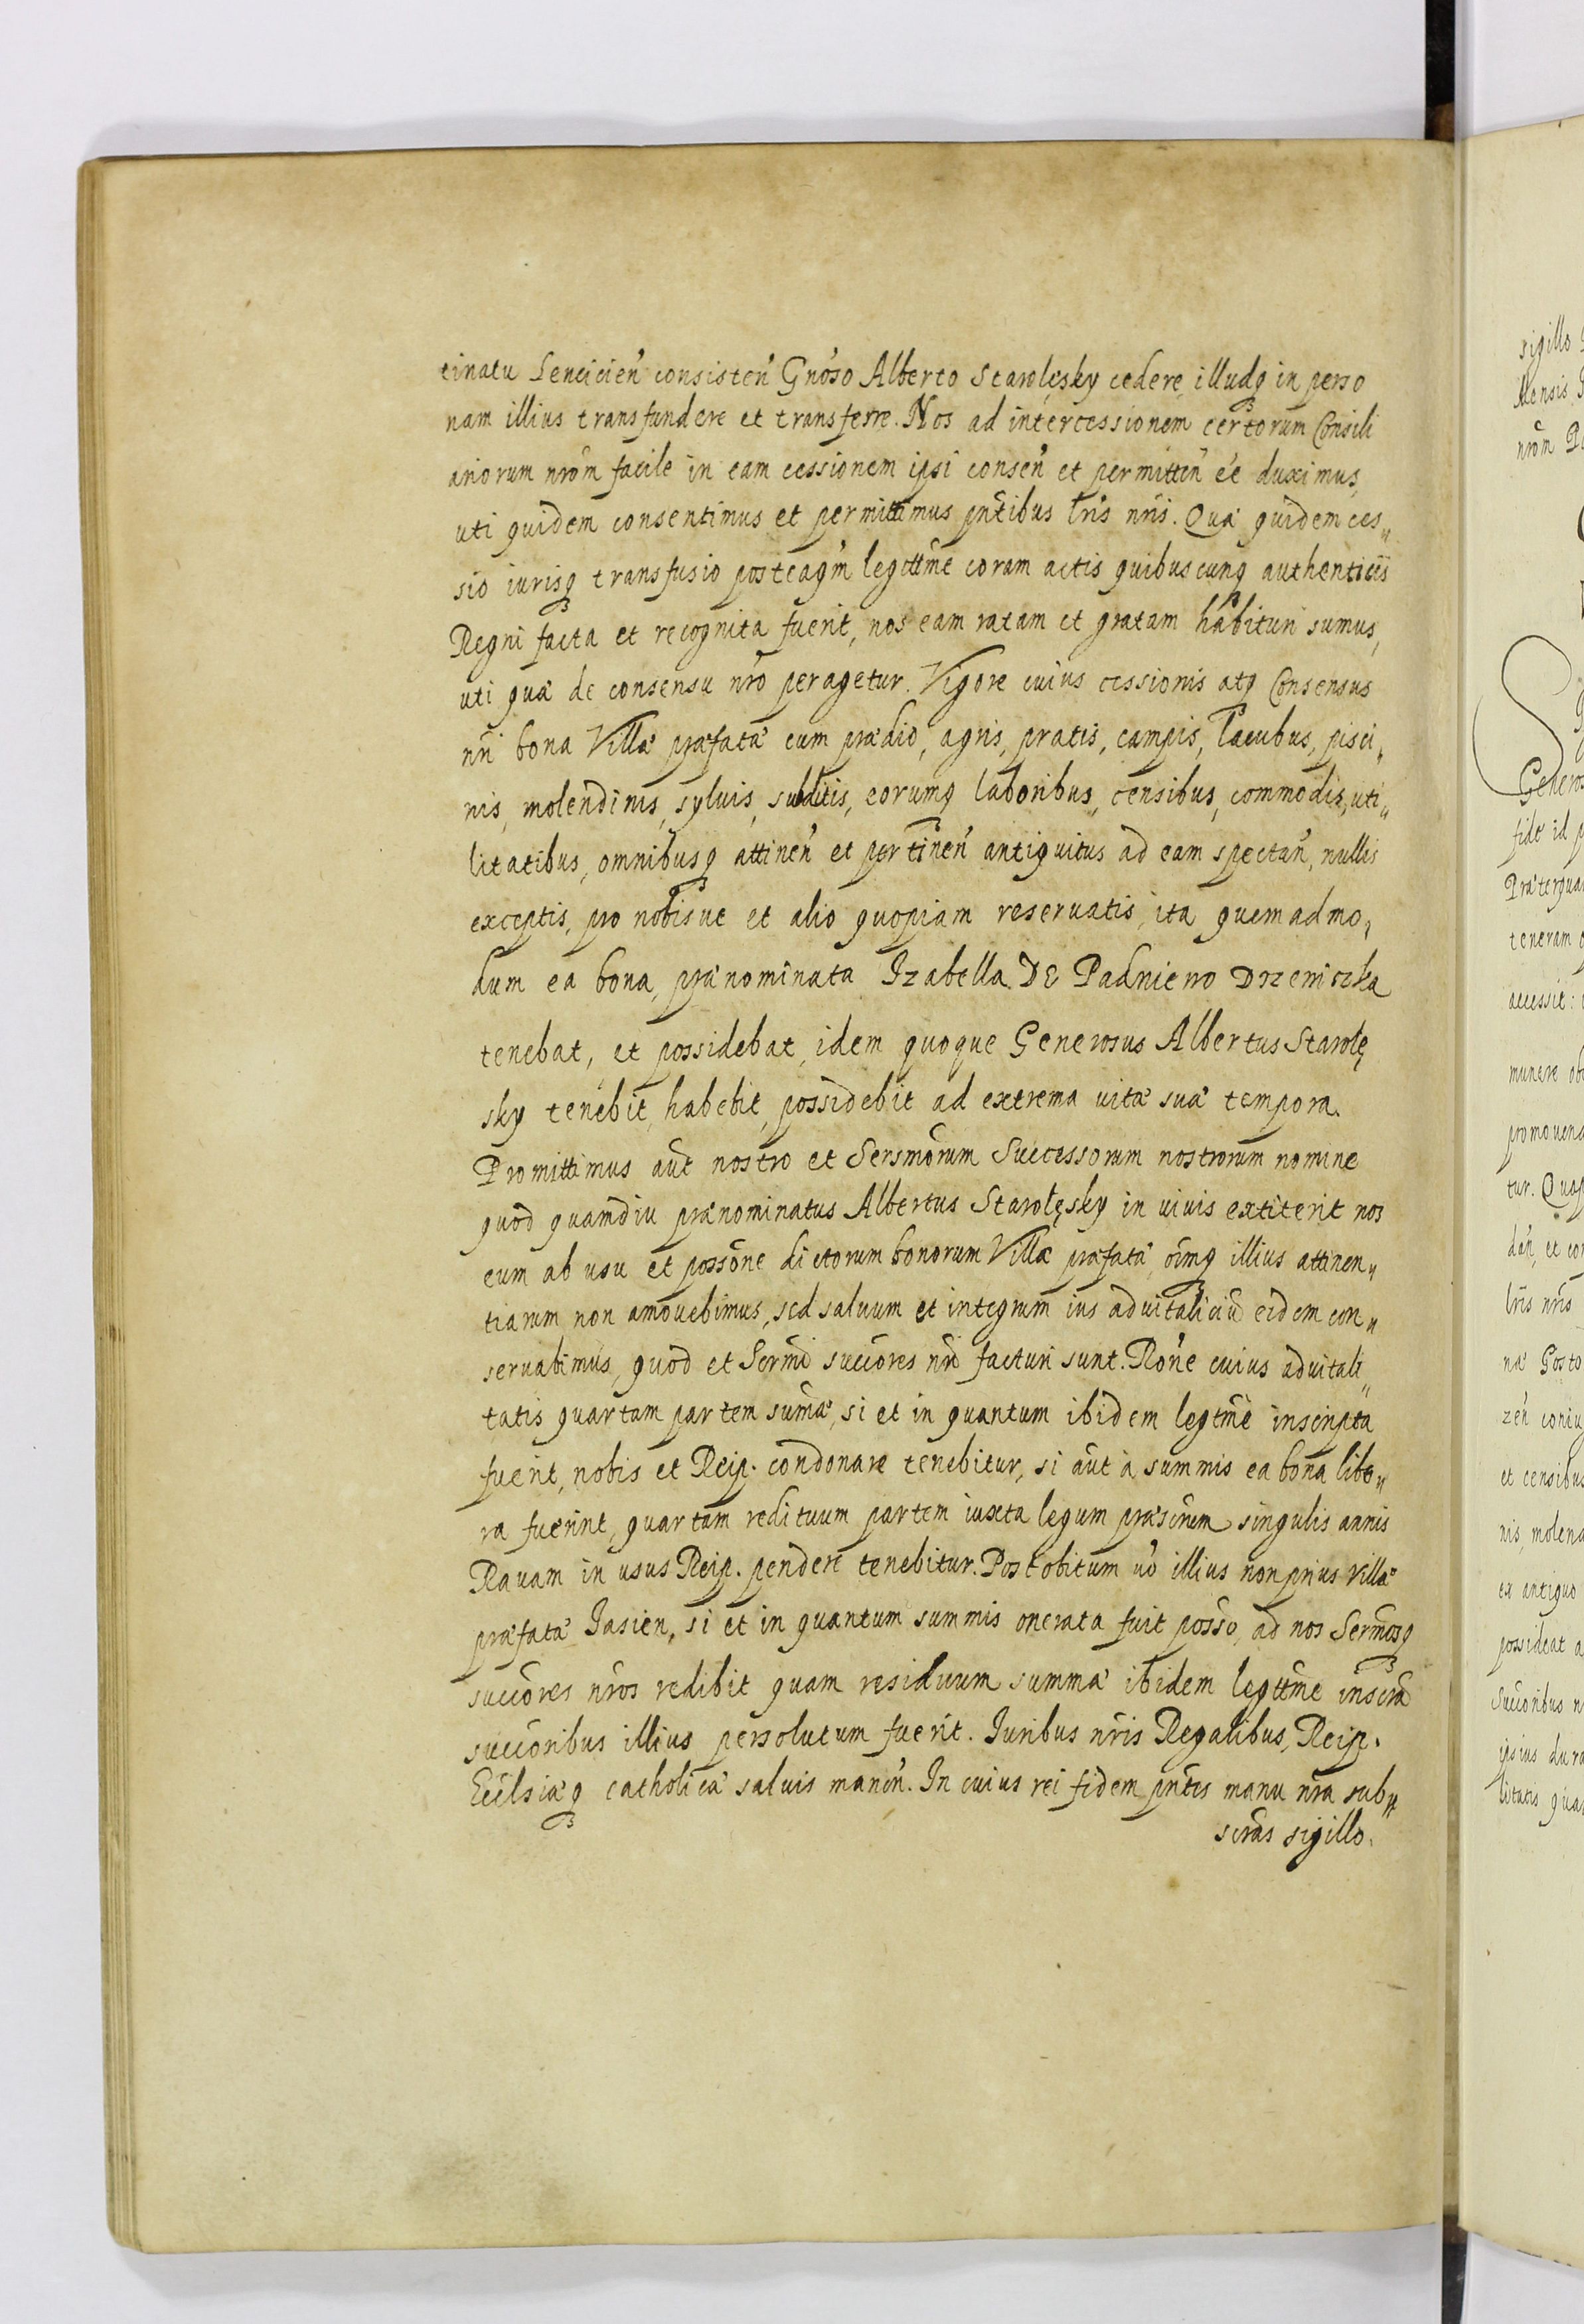 tinatu Lencicieñ consisteñ Gnoso Alberto Starolęsky cedere, illudq in perso
nam illius transfundere et transferre. Nos ad intercessionem certorum Consili
ariorum nrõm facile in eam cessionem ipsi conseñ et permitteñ ẽe duximus,
uti quidem consentimus et permittimus pntibus lris nris. Quæ quidem ces„
sio iurisq transfusio posteaqm legittme coram actis quibuscunq authenticis
Regni facta et recognita fuerit, nos eam ratam et gratam habituri sumus,
uti quæ de consensu nro peragetur. Vigore cuius cessionis atq Consensus
nri bona Villæ præfatæ cum prædio, agris, pratis, campis, lacubus, pisci„
nis, molendinis, sylvis, subditis, eorumq laboribus, censibus, commodis, uti„
litatibus, omnibusq attineñ et pertineñ antiquitus ad eam spectañ, nullis
exceptis, pro nobisue et alio quopiam reseruatis, ita quemadmo„
dum ea bona, prænominata Izabella DE Padniewo Drzewiczka
tenebat, et possidebat, idem quoque Generosus Albertus Starolę
sky tenebit, habebit, possidebit ad extrema uitæ suæ tempora.
Promittimus aut nostro et Sersmorum Successorum nostrorum nomine
quod quamdiu prænominatus Albertus Starolęsky in uiuis extiterit nos
eum ab usu et possone dictorum bonorum Villæ præfatæ, oimq illius attinen„
tiarum non amouebimus, sed saluum et integrum ius aduitaliciũ eidem con„
seruabimus, quod et Sermi succores nri facturi sunt. Rone cuius aduitali„
tatis quartam partem sumæ, si et in quantum ibidem legtme inscripta
fuerit, nobis et Reip. condonare tenebitur, si aut à summis ea bona libe„
ra fuerint, quartam redituum partem iuxta legum præscrum singulis annis
Rauam in usus Reip. pendere tenebitur. Post obitum uo illius non prius Villæ
præfatæ Jasien, si et in quantum summis onerata fuit posso, ad nos Sermosq
succores nros redibit quam residuum summæ ibidem legttme inscrã
succoribus illius persolutum fuerit. Iuribus nris Regalibus, Reip.
Ecclsiæq catholicæ saluis maneñ. In cuius rei fidem pntes manu nra sub„
scras sigillo.
sigillo
nrom
Generos
fide id p
Præterqua
teneram
accessit:
munere ob
promouend
tur. Quap
dañ, et con
lris nris
zeñ coniu
et censibus
nis, molend
ex antiquo
possideat a
succoribus n
ipsius dura
litatis quar